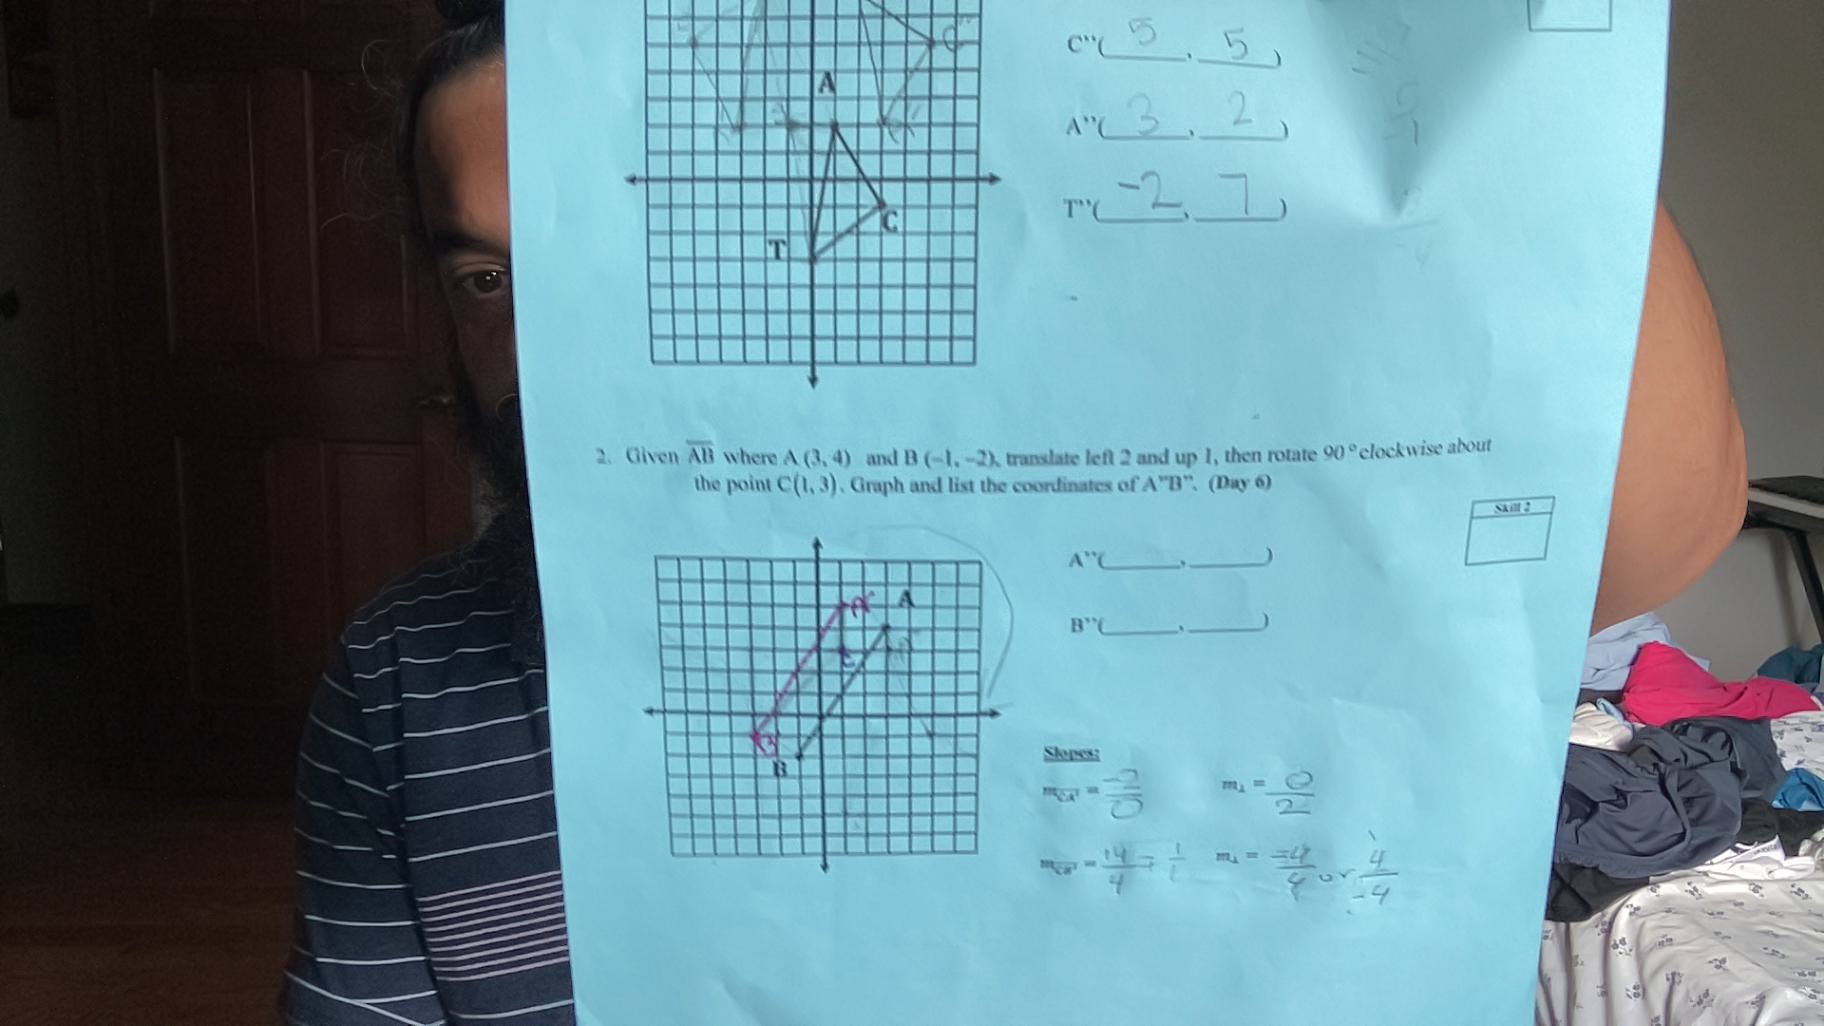 C''( 5 , 5 )
C''
A
A''( 3 , 2 )
T''( -2 , 7 )
C
T
2. Given AB where A (3, 4) and B (-1, -2), translate left 2 and up 1, then rotate 90° clockwise about
the point C(1, 3). Graph and list the coordinates of A''B''. (Day 6)
Skill 2
A''(____,____)
A' A
B''(____,____)
C
B
Slopes:
m CA' = 2/0 m⊥ = 0/2
m CB' = 4/4 = 1/1 m⊥ = -4/4 or 4/-4